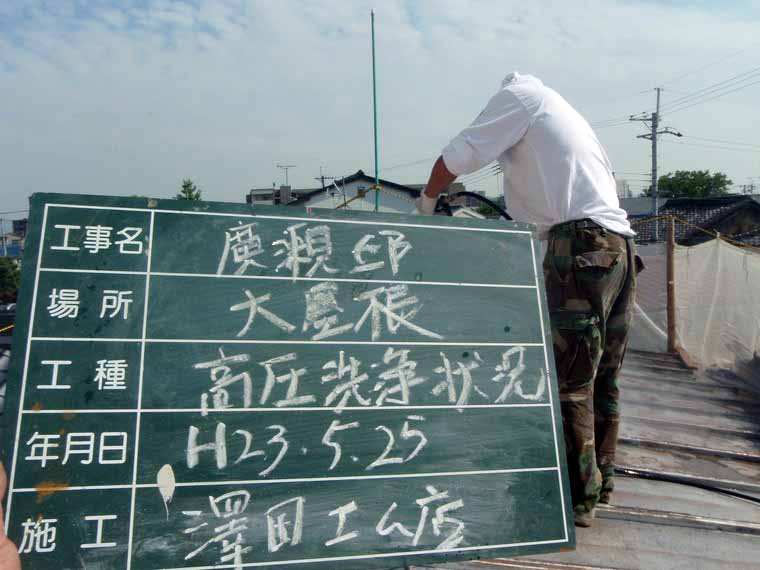 工事名 廣瀬邸
場所 大屋根
工種 高圧洗浄状況
年月日 H23.5.25
施工 澤田工ム店